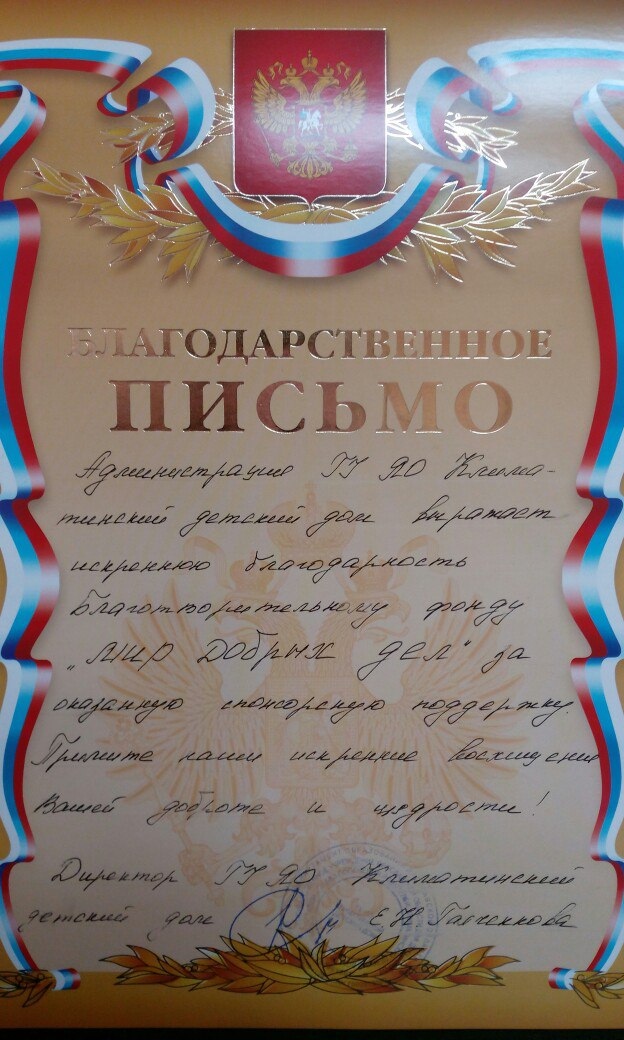 БЛАГОДАРСТВЕННОЕ
ПИСЬМО
Администрация ГУ ЯО Клима-
тинский детский дом выражает
искреннюю благодарность
Благотворительному фонду
„Мир Добрых дел" за
оказанную спонсорскую поддержку.
Примите наши искренние восхищения
Вашей доброте и щедрости!
Директор ГУ ЯО Климатинский
детский дом Е Н